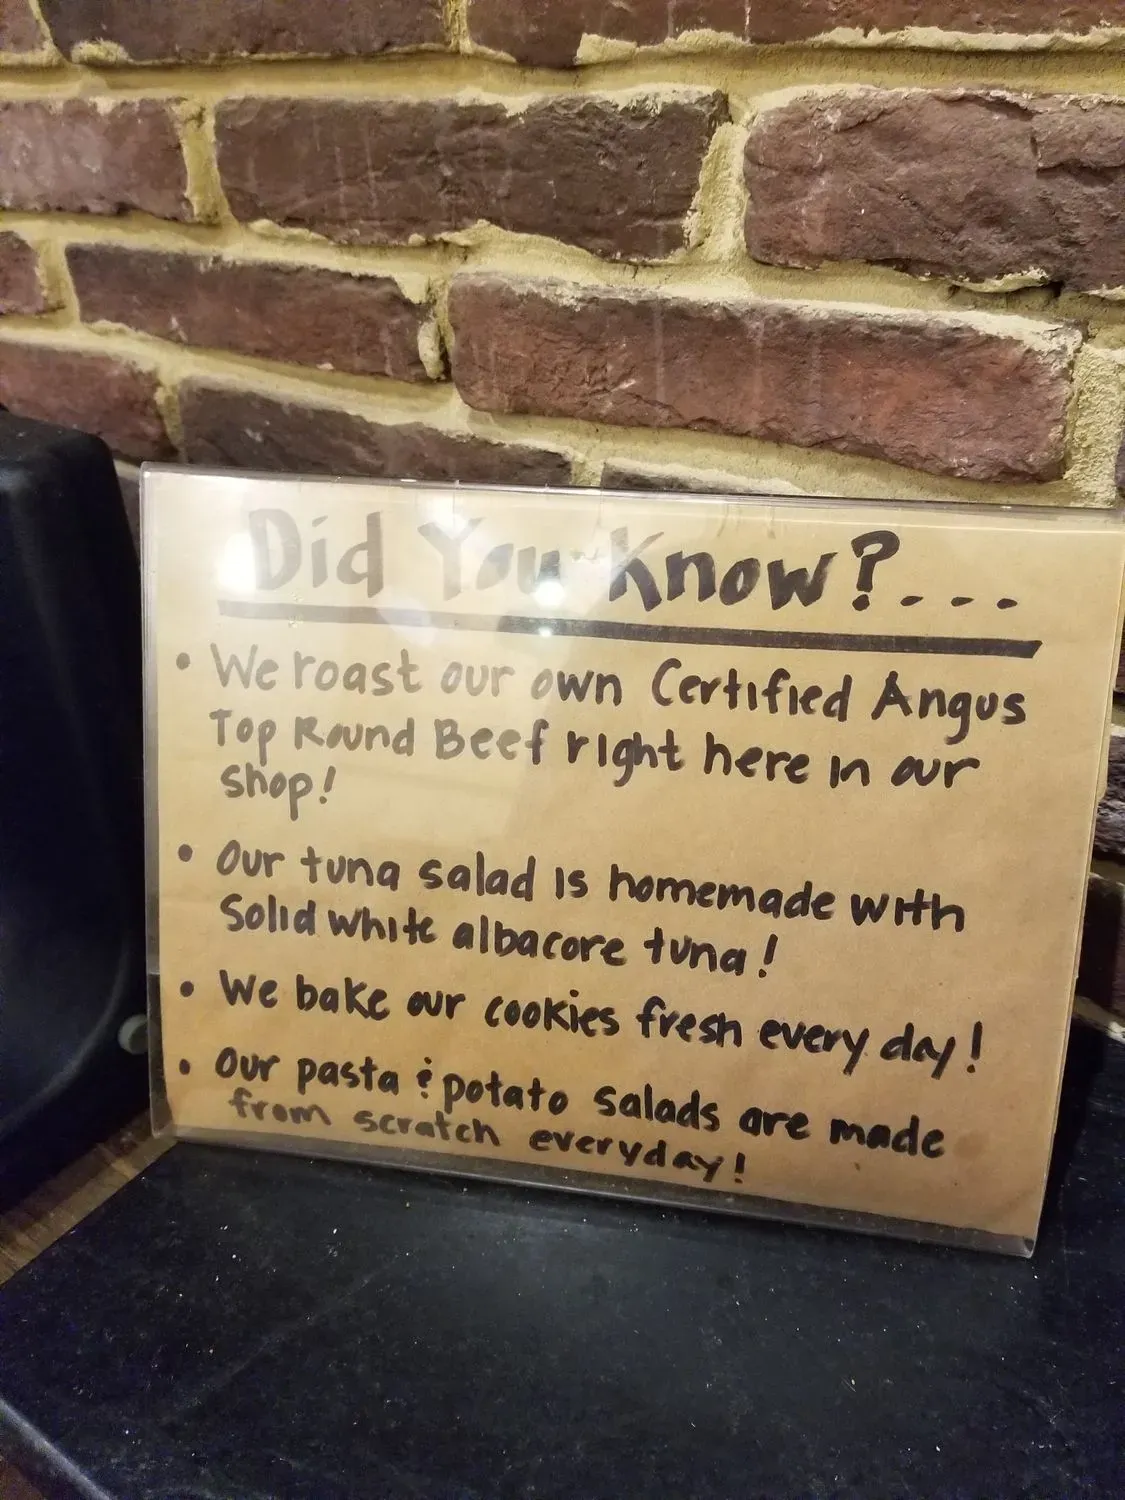 Did You Know?...
• We roast our own Certified Angus
Top Round Beef right here in our
shop!
• Our tuna salad is homemade with
Solid white albacore tuna!
• We bake our cookies fresh every day!
• Our pasta & potato salads are made
from scratch everyday!